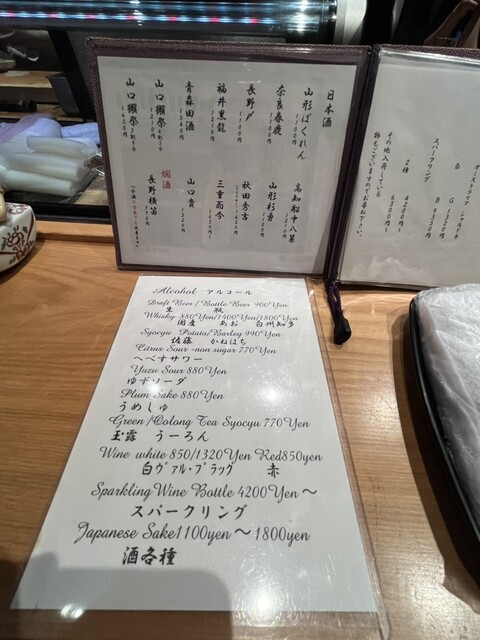 日本酒
山形ばくれん
1100円
奈良春鹿
1100円
長野〆
1100円
福井黒龍
1100円
青森田酒
1340円
山口獺祭3割9分
1210円
山口獺祭2割3分
1430円
高知船中八策
山形杉勇
秋田秀吉
三重而今
山口貴
燗酒
長野横笛
770円
スパークリング
2種 4200円〜
その他入荷している
物もございますのでお尋ね下さい。
Alcohol アルコール
Draft Beer / Bottle Beer 900Yen
生 瓶
Whisky 880Yen/1400Yen/1800Yen
国産 あお 白州知多
Syocyu Potato/Barley 990Yen
佐藤 かねはち
Citrus Sour -non sugar 770Yen
へべすサワー
Yuzu Sour 880Yen
ゆずソーダ
Plum Sake 880Yen
うめしゅ
Green /Oolong Tea Syocyu 770Yen
玉露 うーろん
Wine white 850/1320Yen Red850yen
白ヴァル・ブラッグ 赤
Sparkling Wine Bottle 4200Yen〜
スパークリング
Japanese Sake1100yen〜1800yen
酒各種